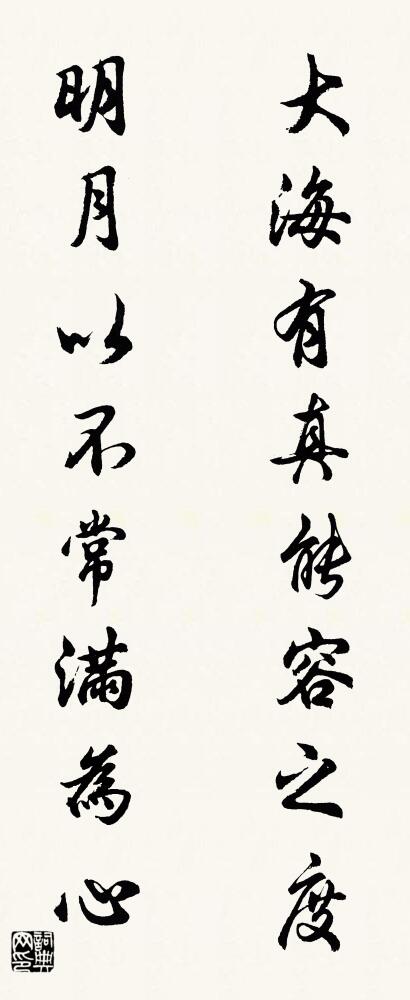 大海有真能容之度
明月以不常滿為心
詞典網印